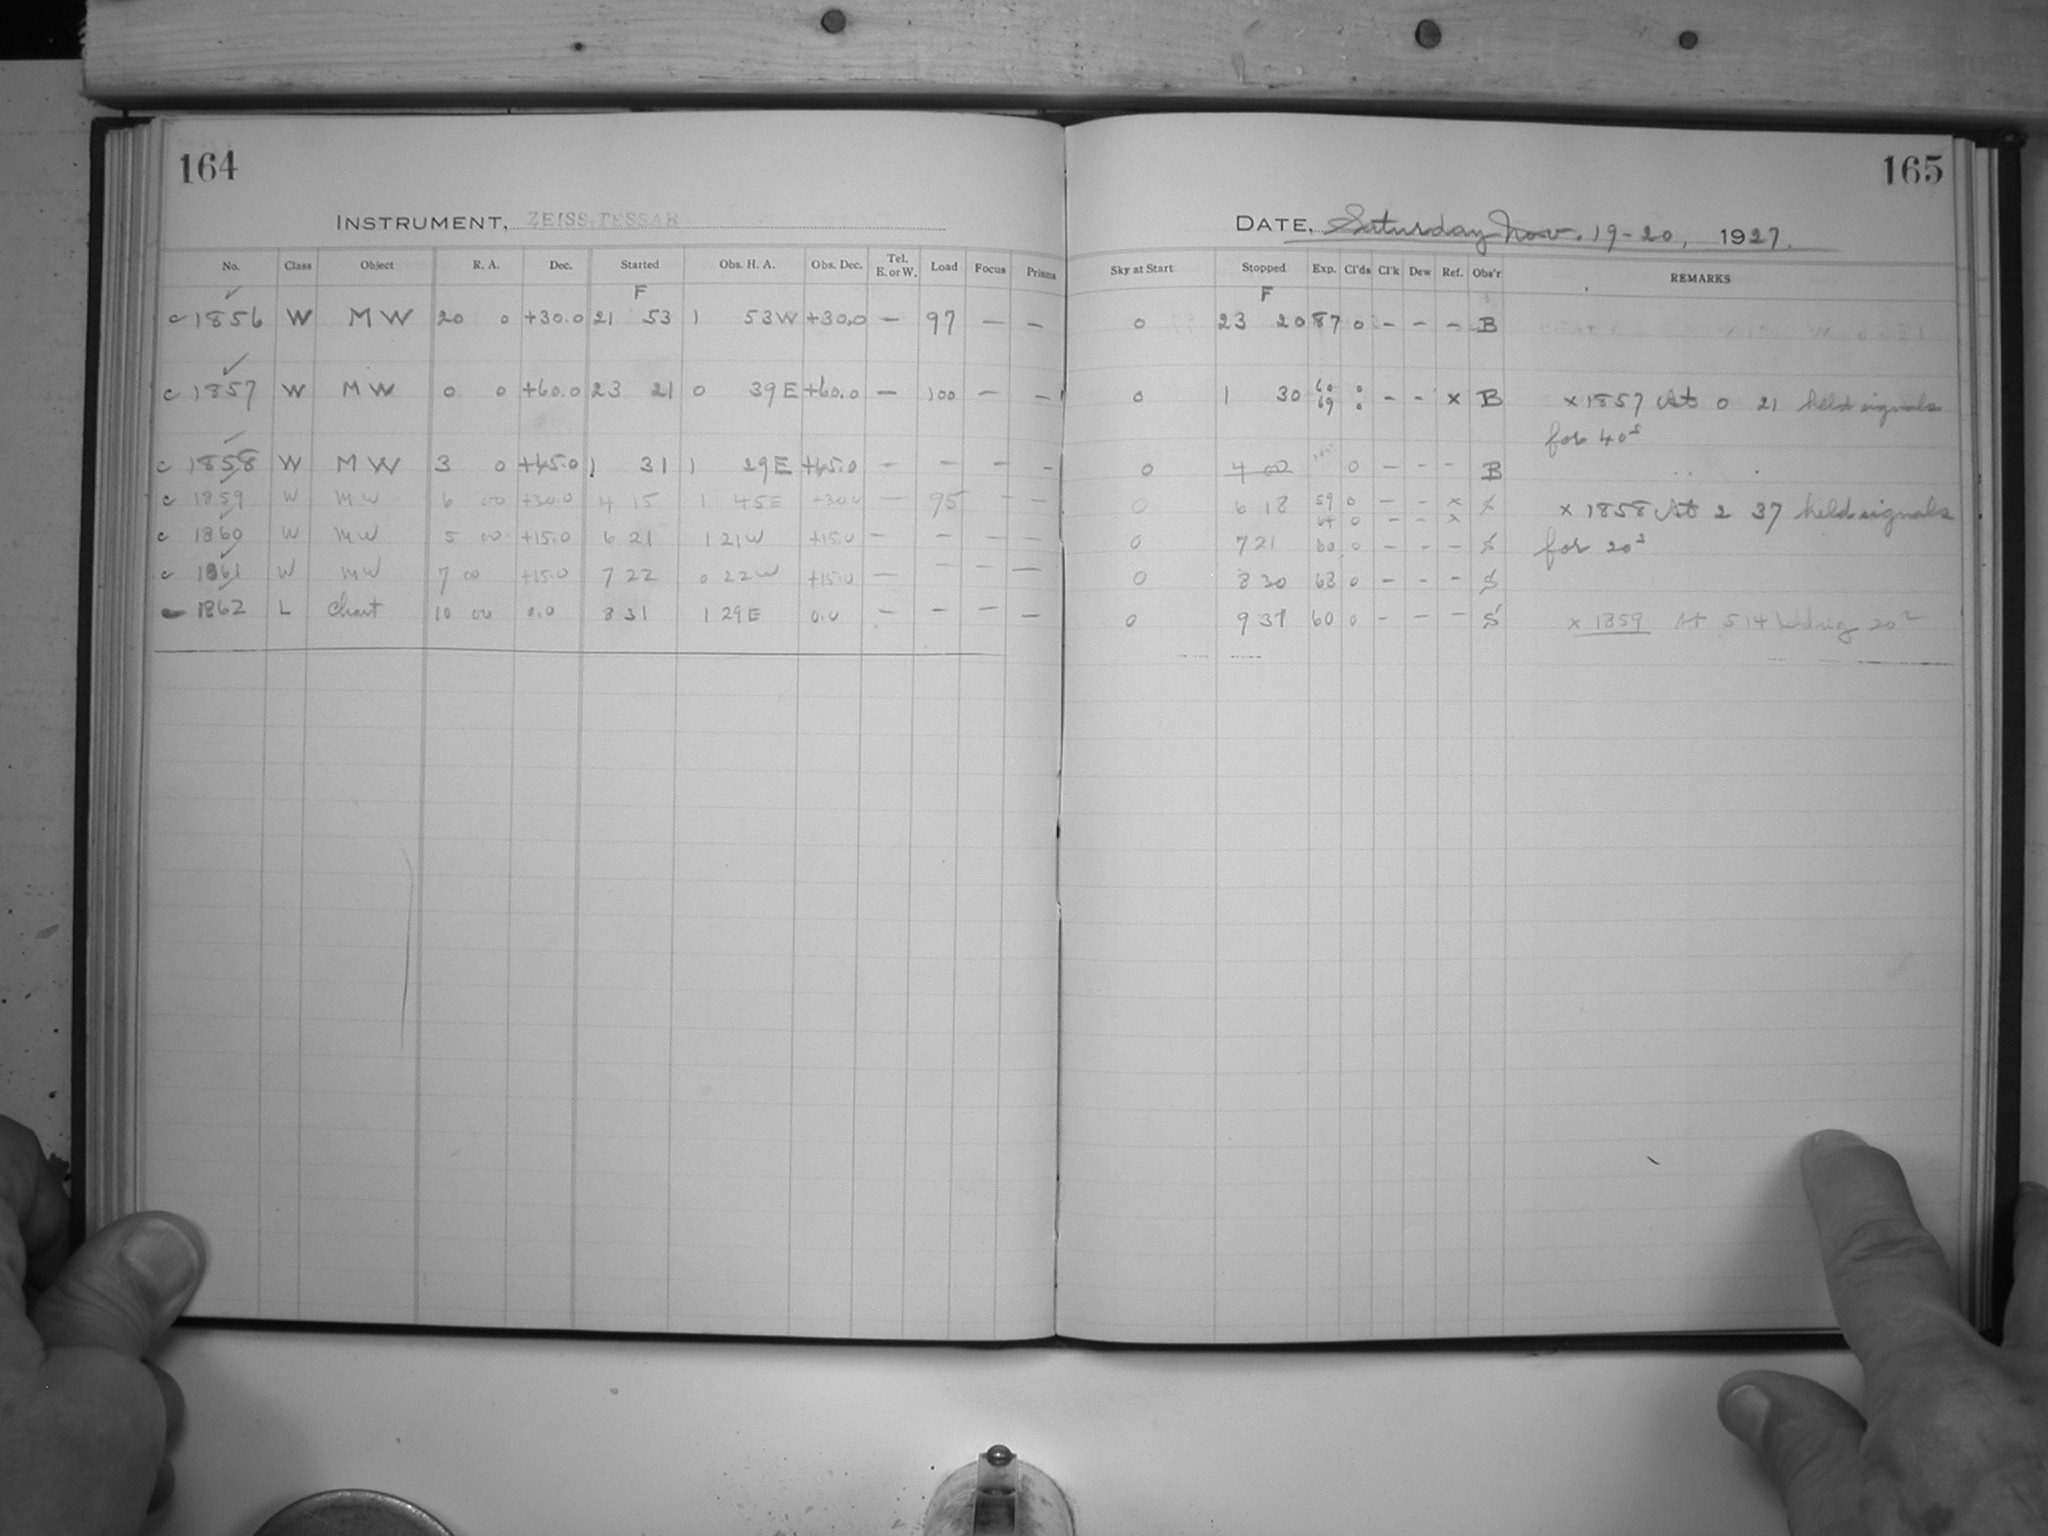 164
INSTRUMENT, ZEISS-TESSAR
No. Class Object R. A. Dec. Started Obs. H. A. Obs. Dec. Tel. E. or W. Load Focus Prisms
F
c 1856 W M W 20 0 +30.0 21 53 1 53W +30.0 — 97 — —
c 1857 W M W 0 0 +60.0 23 21 0 39E +60.0 — 100 — —
c 1858 W M W 3 0 +45.0 1 31 1 29E +45.0 — — — —
c 1859 W M W 6 00 +30.0 4 15 1 45E +30.0 — 95 — —
c 1860 W M W 5 00 +15.0 6 21 1 21W +15.0 — — — —
c 1861 W M W 7 00 +15.0 7 22 0 22W +15.0 — — — —
1862 L Chart 10 00 0.0 8 31 1 29E 0.0 — — — —
165
DATE, Saturday Nov. 19-20, 1927.
Sky at Start Stopped Exp. Cl'ds Cl'k Dew Ref. Obs'r REMARKS
F
0 23 20 87 0 – – – B
0 1 30 60 69 0 0 – – x B x 1857 At 0 21 held signals
for 40s
0 4 00 0 – – – B
0 6 18 59 0 – – x S x 1858 At 2 37 held signals
64 0 – – x
0 7 21 60 0 – – – S for 20s
0 8 30 68 0 – – – S
0 9 31 60 0 – – – S x 1859 At 5 14 20s